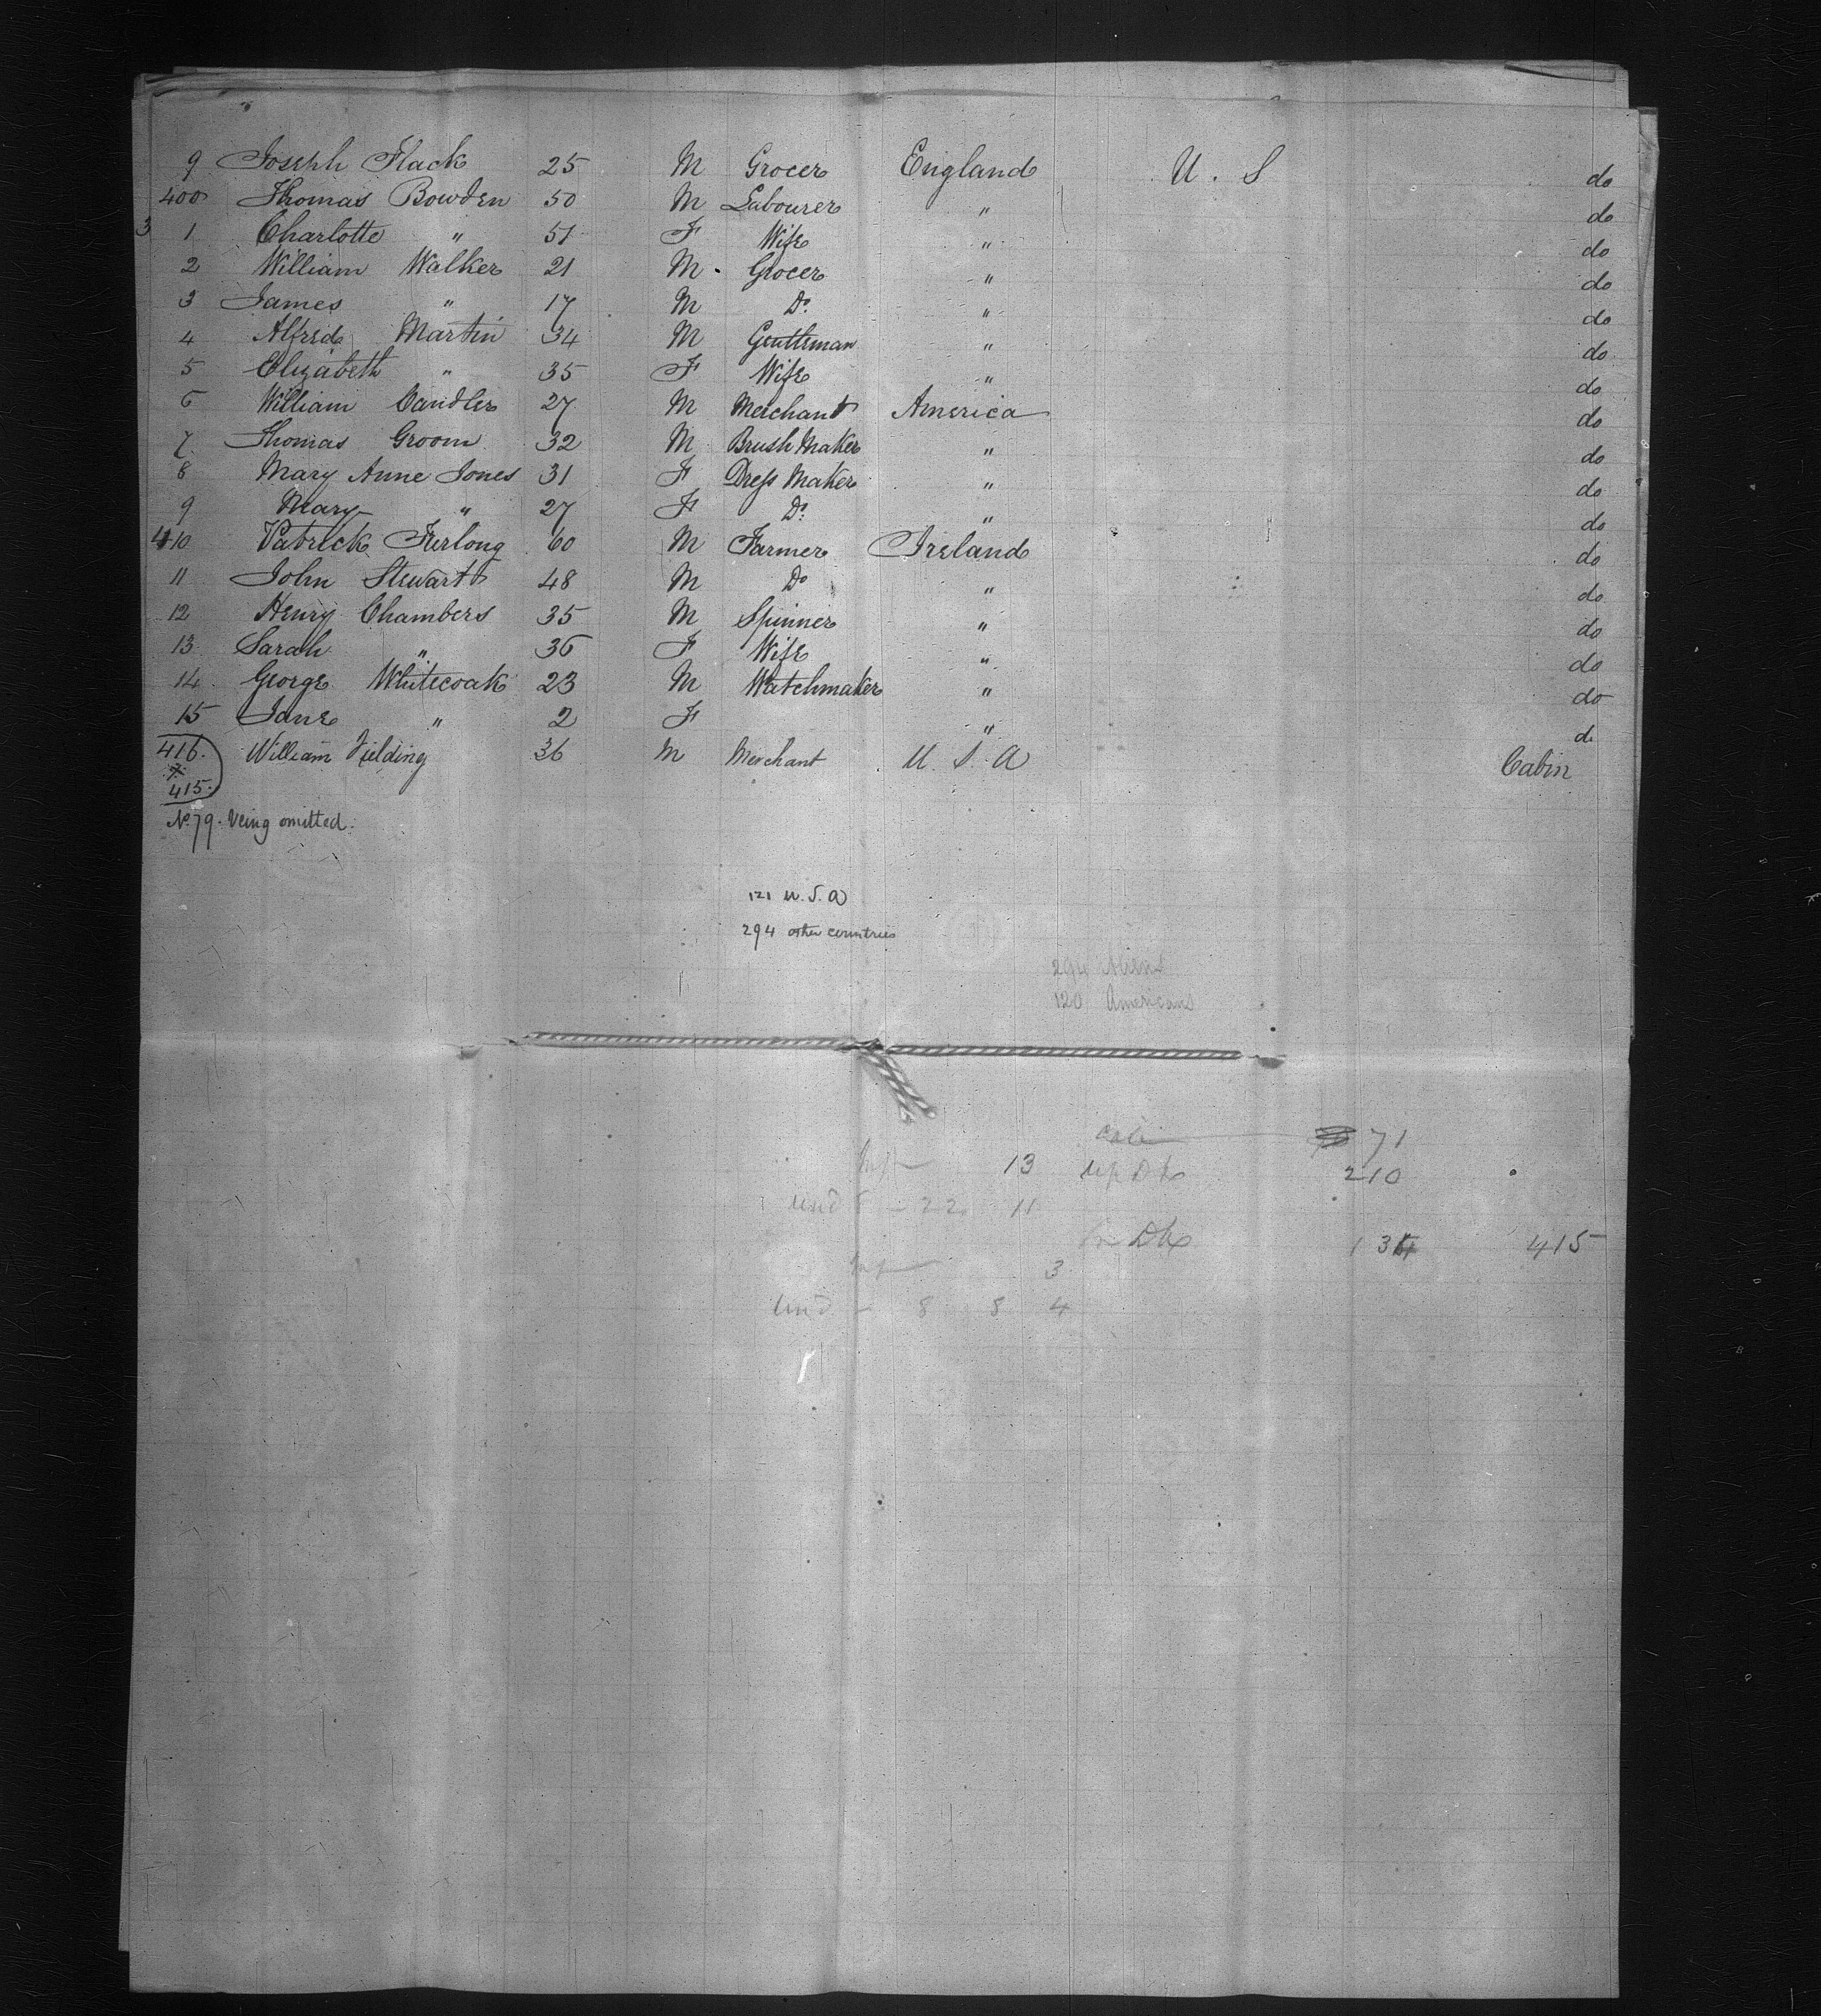 9 Joseph Flack 25 M Grocer England U. S do
400 Thomas Bowden 50 M Labourer " do
3 1 Charlotte " 51 F Wife " do
2 William Walker 21 M. Grocer " do
3 James " 17 M Do. " do
4 Alfred Martin 34 M Gentleman " do
5 Elizabeth " 35 F Wife " do
6 William Candler 27 M Merchant America do
7 Thomas Groom 32 M Brush Maker " do
8 Mary Anne Jones 31 F Dress Maker " do
9 Mary " 27 F Do. " do
410 Patrick Furlong 60 M Farmer Ireland do
11 John Stewart 48 M Do " do
12 Henry Chambers 35 M Spinner " do
13 Sarah " 36 F Wife " do
14 George Whitecoak 23 M Watchmaker " do
15 Jane " 2 F " do
416. William Fielding 36 M Merchant U. S. A Cabin
415.
No 79. being omitted.
121 U.S.A
294 other countries
294 Aliens
120 Americans
71
13 Up Dk 210
und 22 11
Dk 134 415
3
und 8 8 4